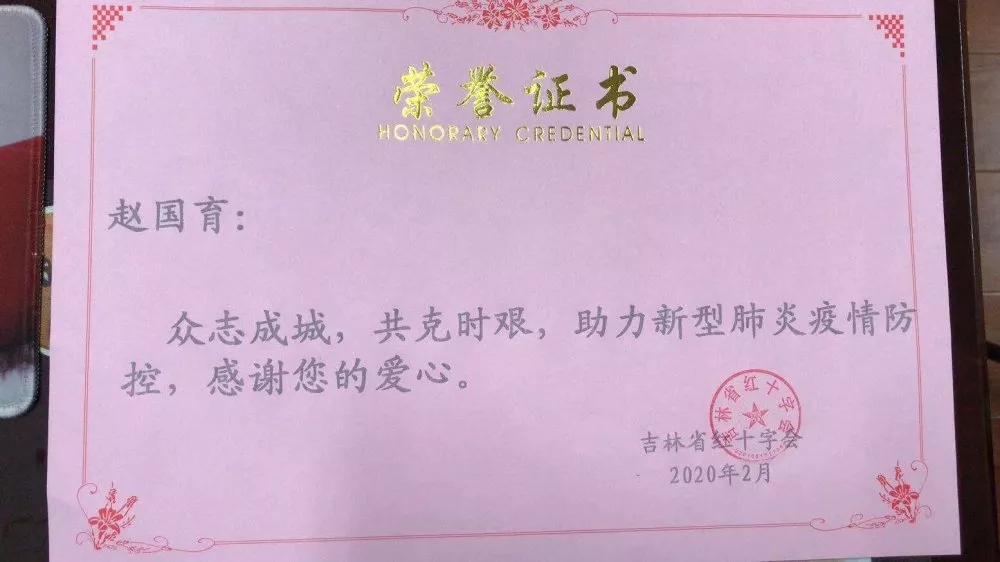 荣誉证书
HONORARY CREDENTIAL
赵国育：
众志成城，共克时艰，助力新型肺炎疫情防
控，感谢您的爱心。
吉林省红十字会
吉林省红十字会
2020年2月